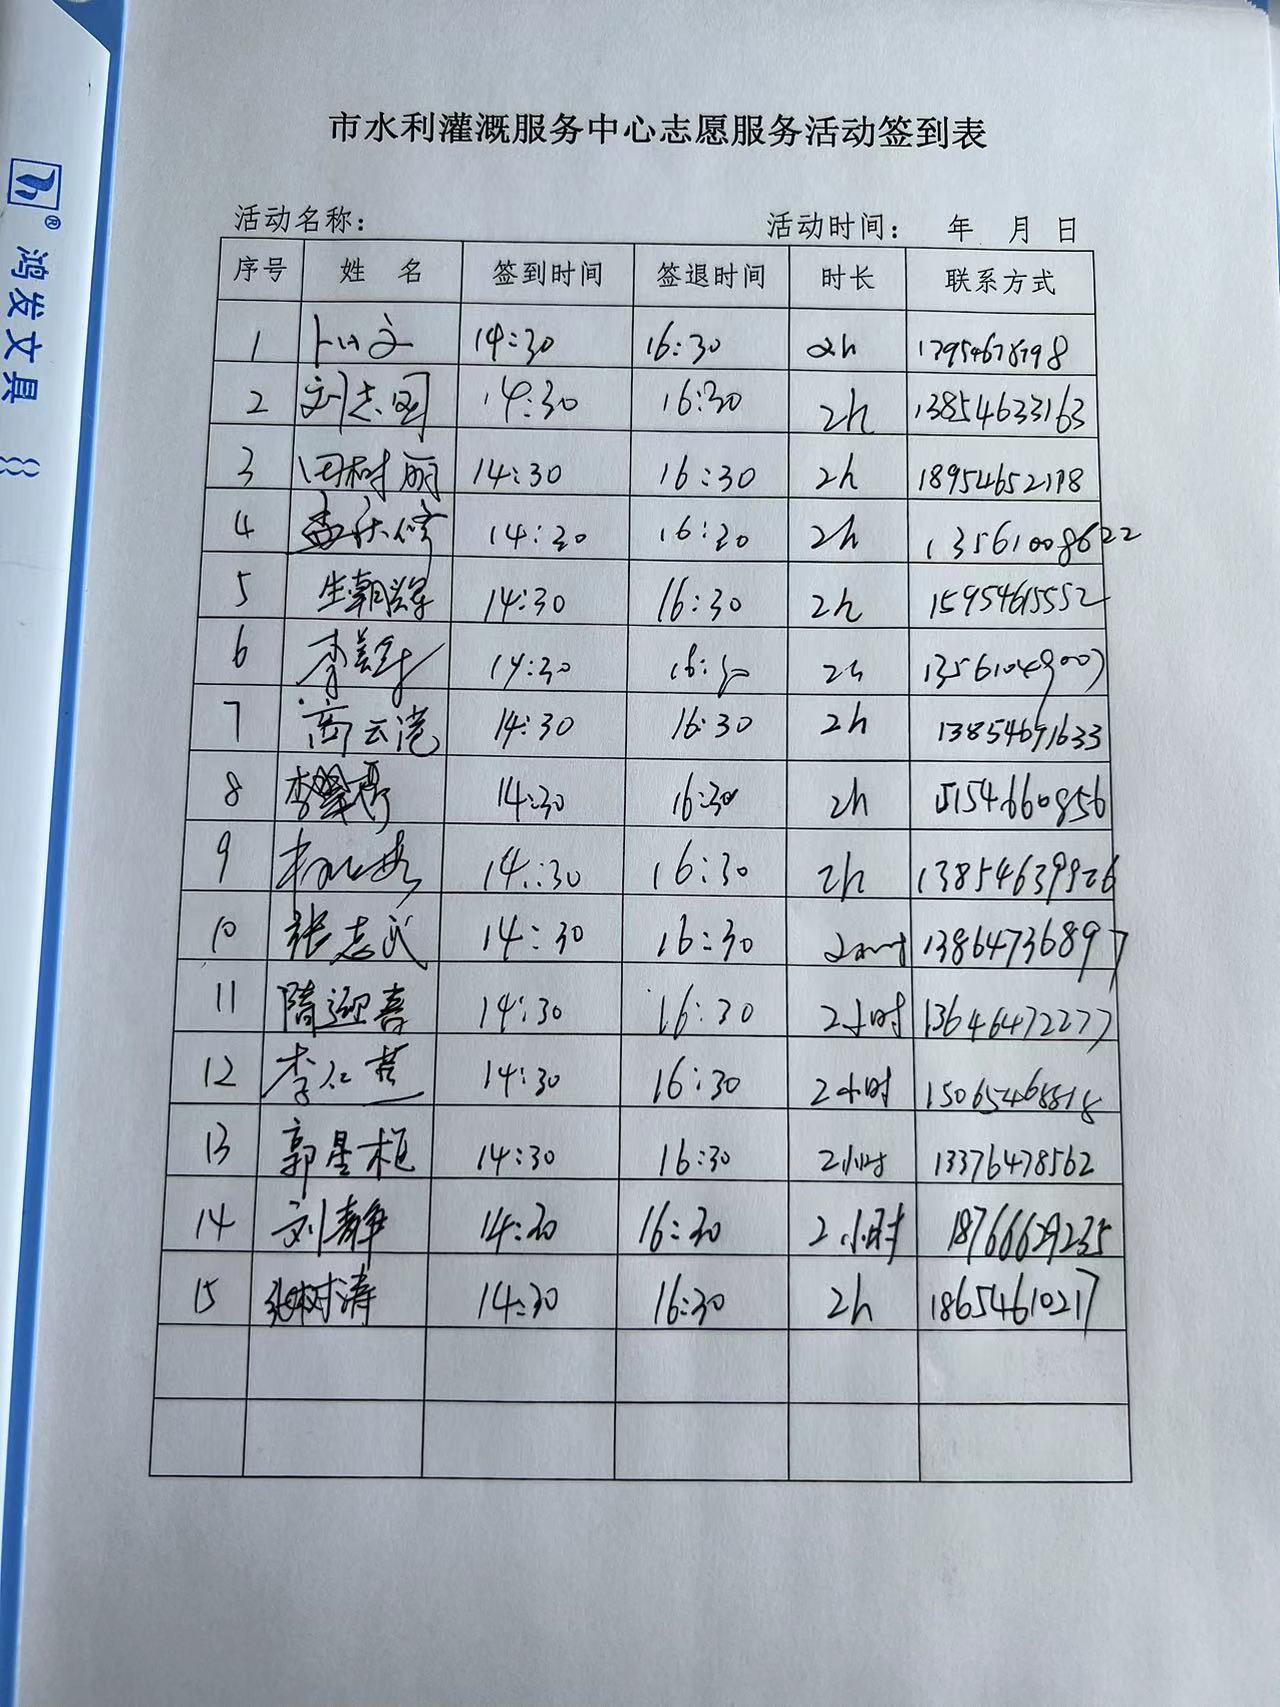 市水利灌溉服务中心志愿服务活动签到表
活动名称： 活动时间： 年 月 日
序号 姓 名 签到时间 签退时间 时长 联系方式
1 14:30 16:30 2h
2 刘志国 14:30 16:30 2h 13854633163
3 田树丽 14:30 16:30 2h 18954652198
4 14:30 16:30 2h 13561008622
5 生朝辉 14:30 16:30 2h 15954615552
6 14:30 16:30 2h 13561049007
7 商云港 14:30 16:30 2h 13854691633
8 14:30 16:30 2h 15154660856
9 14:30 16:30 2h 13854639926
10 张志武 14:30 16:30 13864736897
11 隋迎喜 14:30 16:30 2小时 13646472277
12 14:30 16:30 2小时 15065468818
13 郭星桓 14:30 16:30 2小时 13376478562
14 刘静 14:30 16:30 2小时 18766629235
15 张树涛 14:30 16:30 2h 18654610217
鸿发文具